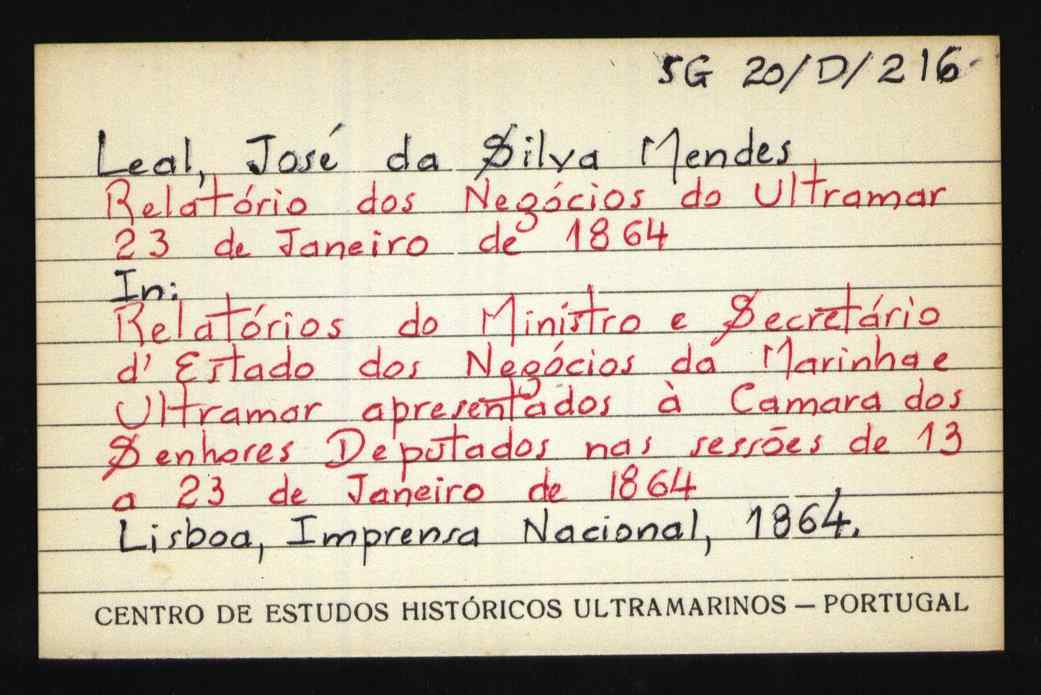 SG 20/D/216
Leal, José da Silva Mendes
Relatório dos Negócios do Ultramar
23 de Janeiro de 1864
In:
Relatórios do Ministro e Secretário
d'Estado dos Negócios da Marinha e
Ultramar apresentados à Camara dos
Senhores Deputados nas sessões de 13
a 23 de Janeiro de 1864
Lisboa, Imprensa Nacional, 1864.
CENTRO DE ESTUDOS HISTÓRICOS ULTRAMARINOS – PORTUGAL